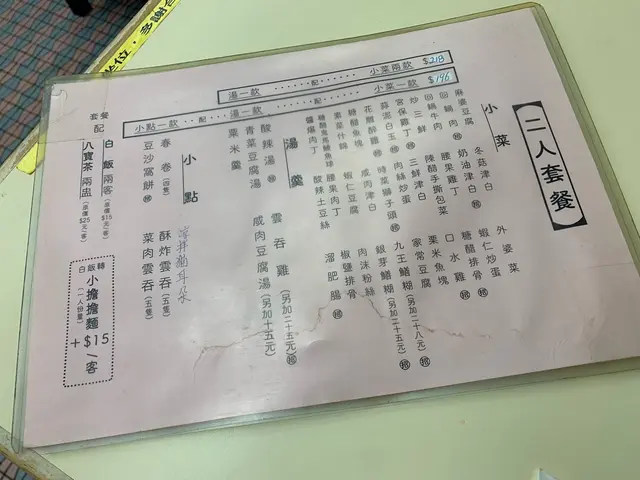 坐位·多謝
二人套餐
湯一款……配……小菜兩款 $218
小點一款‥配‥湯一款……配……小菜一款 $146
小菜
麻婆豆腐
回鍋肉
回鍋牛肉
炒三鮮
宮保雞丁
蒜泥白玉
花雕醉雞
糖醋魚塊
素菜什錦
糖醋鬼馬鱔魚球
醬爆肉丁
冬菇津白
奶油津白
腰果雞丁
陳醋手撕包菜
三鮮津白
肉絲炒蛋
時菜獅子頭
咸肉津白
蝦仁豆腐
腰果肉丁
酸辣土豆絲
外婆菜
蝦仁炒蛋
糖醋排骨
口水雞
粟米魚塊
家常豆腐
九王鱔糊(另加二十八元)
銀芽鱔糊(另加二十五元)
肉沫粉絲
椒鹽排骨
溜肥腸
湯羹
酸辣湯
青菜豆腐湯
粟米羹
雲吞雞(另加二十五元)
咸肉豆腐湯(另加十五元)
小點
春卷(四隻)
豆沙窩餅
涼拌 耳朵
酥炸雲吞(五隻)
菜肉雲吞(五隻)
套餐配
白飯兩客(原價$15元/客)
八寶茶兩盅(原價$25元/客)
白飯轉
小擔擔麵
(二人份量)
+$15/客